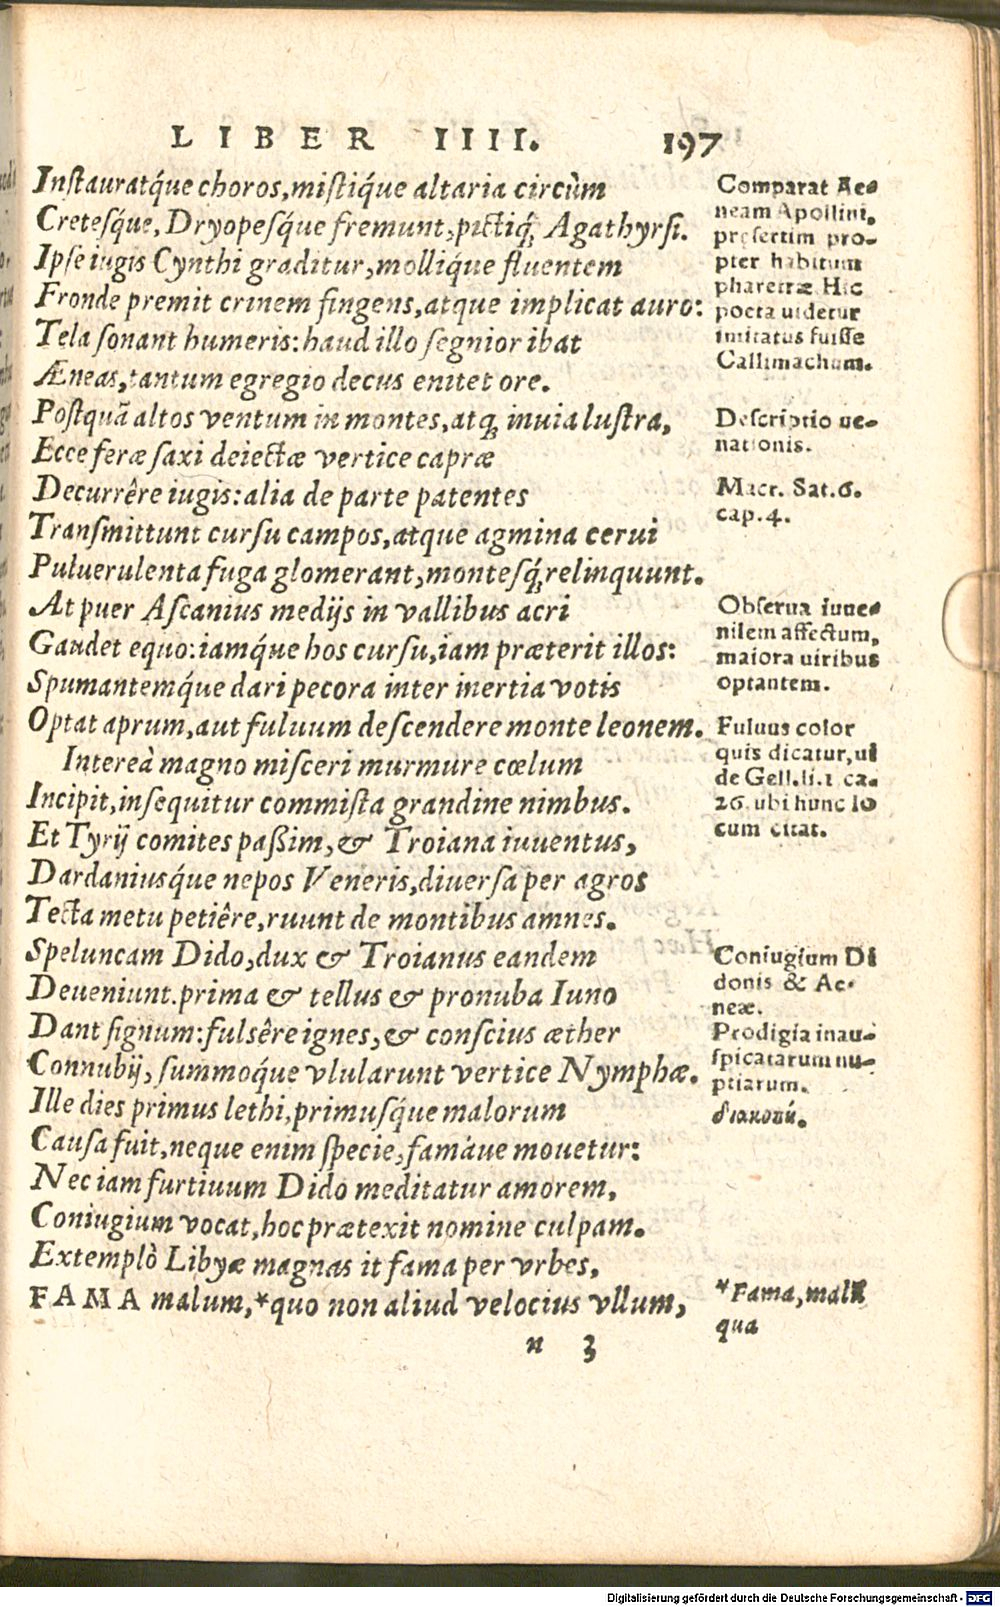 LIBER IIII. 197
Instauratq́ue choros, mistiq́ue altaria circùm
Cretesq́ue, Dryopesq́ue fremunt, pictiq́; Agathyrsi.
Ipse iugis Cynthi graditur, molliq́ue fluentem
Fronde premit crinem fingens, atque implicat auro:
Tela sonant humeris: haud illo segnior ibat
Æneas, tantum egregio decus enitet ore.
Postquā altos ventum in montes, atq; inuia lustra,
Ecce feræ saxi deiectæ vertice capræ
Decurrêre iugis: alia de parte patentes
Transmittunt cursu campos, atque agmina cerui
Puluerulenta fuga glomerant, montesq́; relinquunt.
At puer Ascanius medijs in vallibus acri
Gaudet equo: iamq́ue hos cursu, iam præterit illos:
Spumantemq́ue dari pecora inter inertia votis
Optat aprum, aut fuluum descendere monte leonem.
Intereà magno misceri murmure cœlum
Incipit, insequitur commista grandine nimbus.
Et Tyrij comites paßim, & Troiana iuuentus,
Dardaniusq́ue nepos Veneris, diuersa per agros
Tecta metu petiêre, ruunt de montibus amnes.
Speluncam Dido, dux & Troianus eandem
Deueniunt. prima & tellus & pronuba Iuno
Dant signum: fulsêre ignes, & conscius æther
Connubij, summoq́ue vlularunt vertice Nymphæ.
Ille dies primus lethi, primusq́ue malorum
Causa fuit, neque enim specie, famáue mouetur:
Nec iam furtiuum Dido meditatur amorem,
Coniugium vocat, hoc prætexit nomine culpam.
Extemplò Libyæ magnas it fama per vrbes,
FAMA malum,* quo non aliud velocius vllum,
n 3
Comparat Ae-
neam Apollini,
presertim pro-
pter habitum
pharetræ Hic
poeta uidetur
imitatus fuisse
Callimachum.
Descriptio ue-
nationis.
Macr. Sat.6.
cap.4.
Obserua iuue-
nilem affectum,
maiora uiribus
optantem.
Fuluus color
quis dicatur, ui
de Gell.li.1 ca.
26. ubi hunc lo
cum citat.
Coniugium Di
donis & Ae-
neæ.
Prodigia inau-
spicatarum nu-
ptiarum.
*Fama, mal
qua
Digitalisierung gefördert durch die Deutsche Forschungsgemeinschaft - DFG